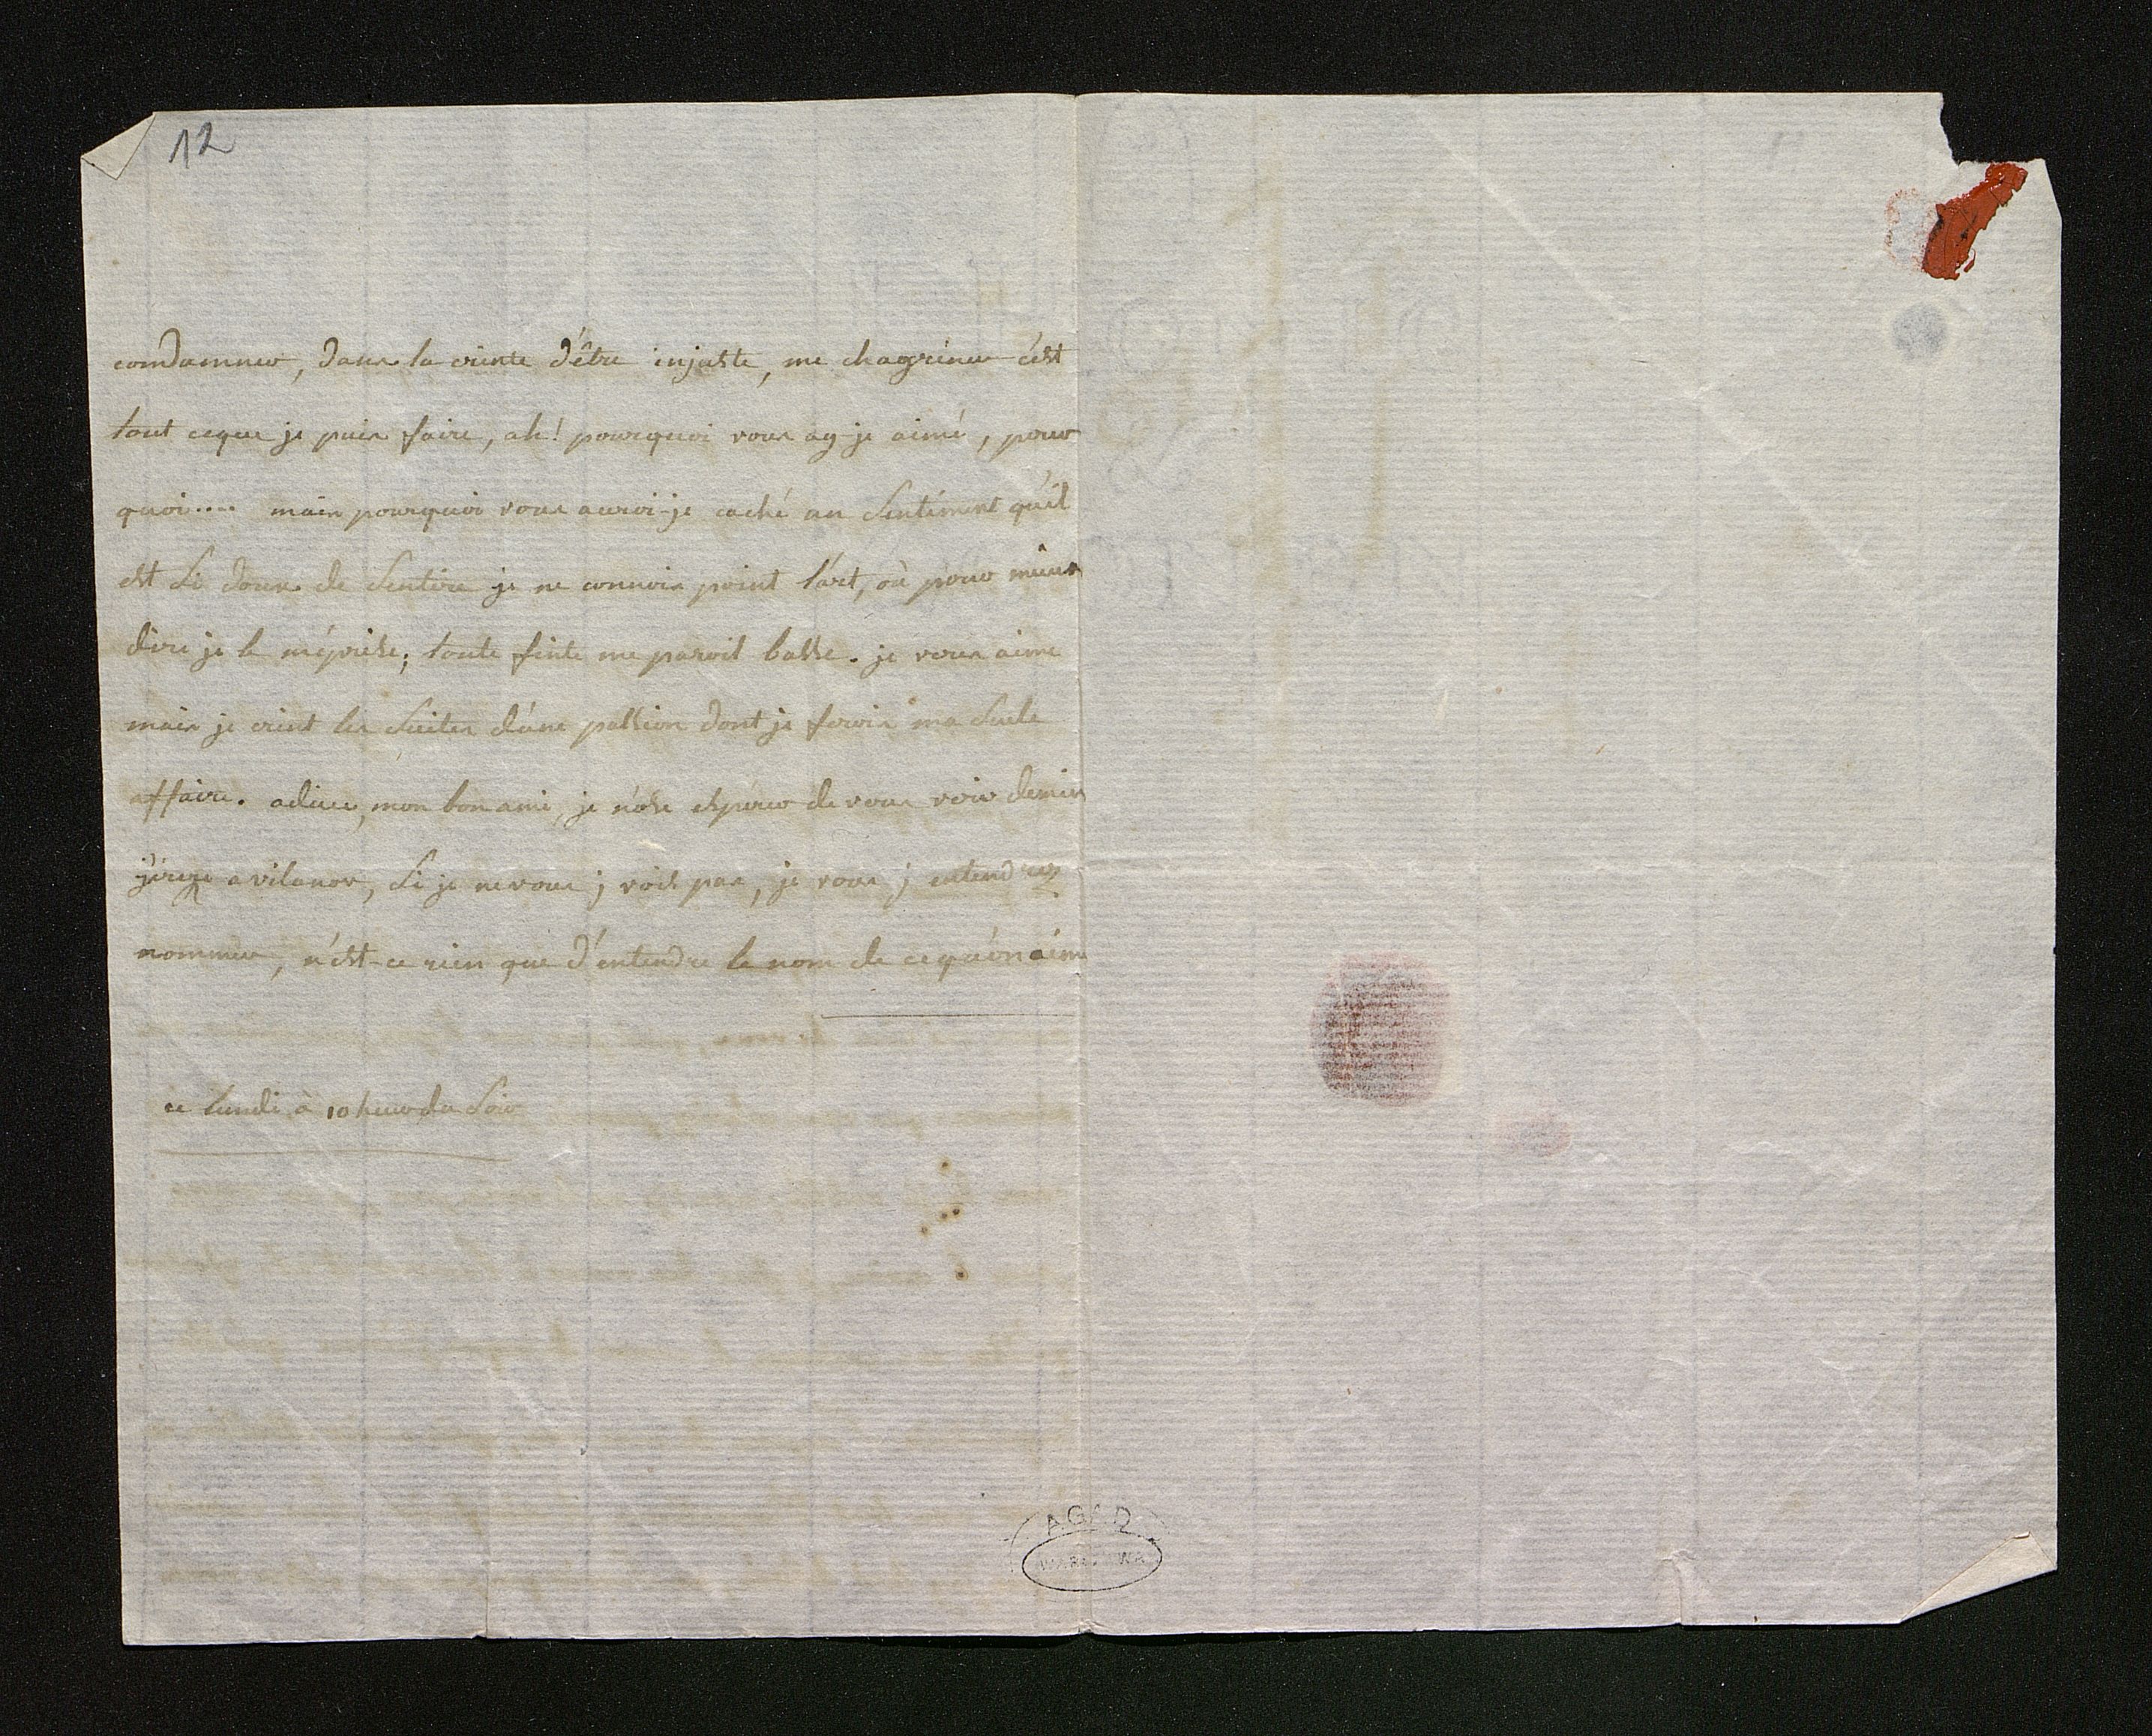 12
comdamner, dans la crinte d'être injuste, me chagriner c'est
tout ceque je puis faire, ah! pourquoi vous ay-je aimé, pour
quoi.... mais pourquoi vous auroi-je caché un sentiment qu'il
est si doux de sentire je ne connois point l'art, où pour mieux
dire je le méprise; toute finte me paroit basse. je vous aime
mais je crint les suites d'une passion dont je ferois ma seule
affaire. adieu, mon bon ami, je n'ose espérer de vous voir demin
j'irez a vilanov, si je ne vous j vois pas, je vous j entendrez
nommer, n'est-ce rien que d'entendre le nom de cequ'on aime
ce lundi à 10 heur du soir
AGAD
WARSZAWA